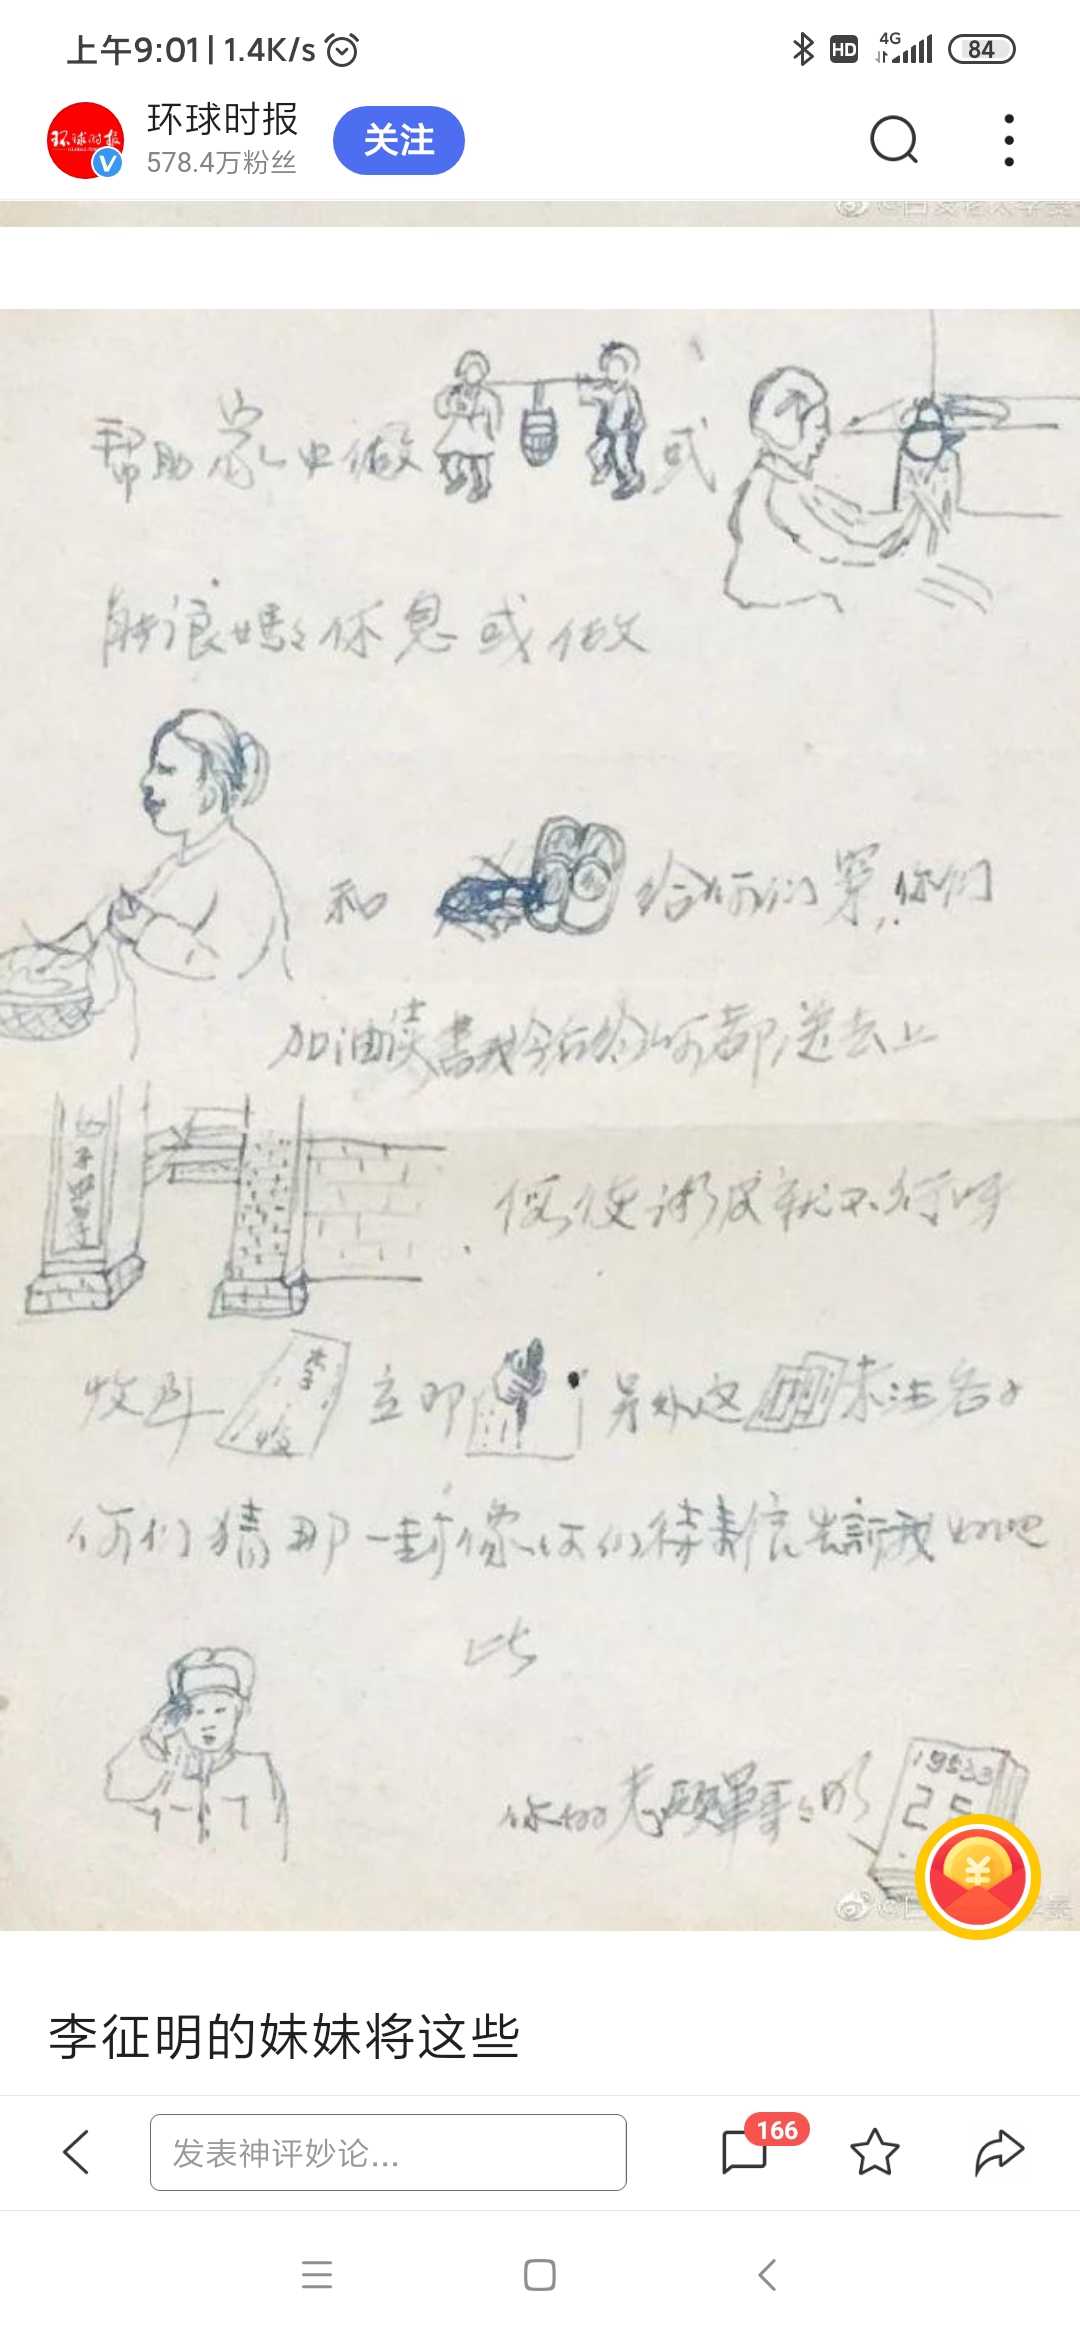 上午9:01 | 1.4K/s
HD 4G 84
环球时报
578.4万粉丝
关注
帮助家中做 或
能让妈休息或做
和 给你们穿,你们
加油读书我今后给你们都送去上
假使调皮就不行呀
收到 李 收 立即 另外这 未注名子
你们猜那一封像你们待来信告诉我好吧
此
你的老头军哥 明
1953 3
25
李征明的妹妹将这些
发表神评妙论...
166